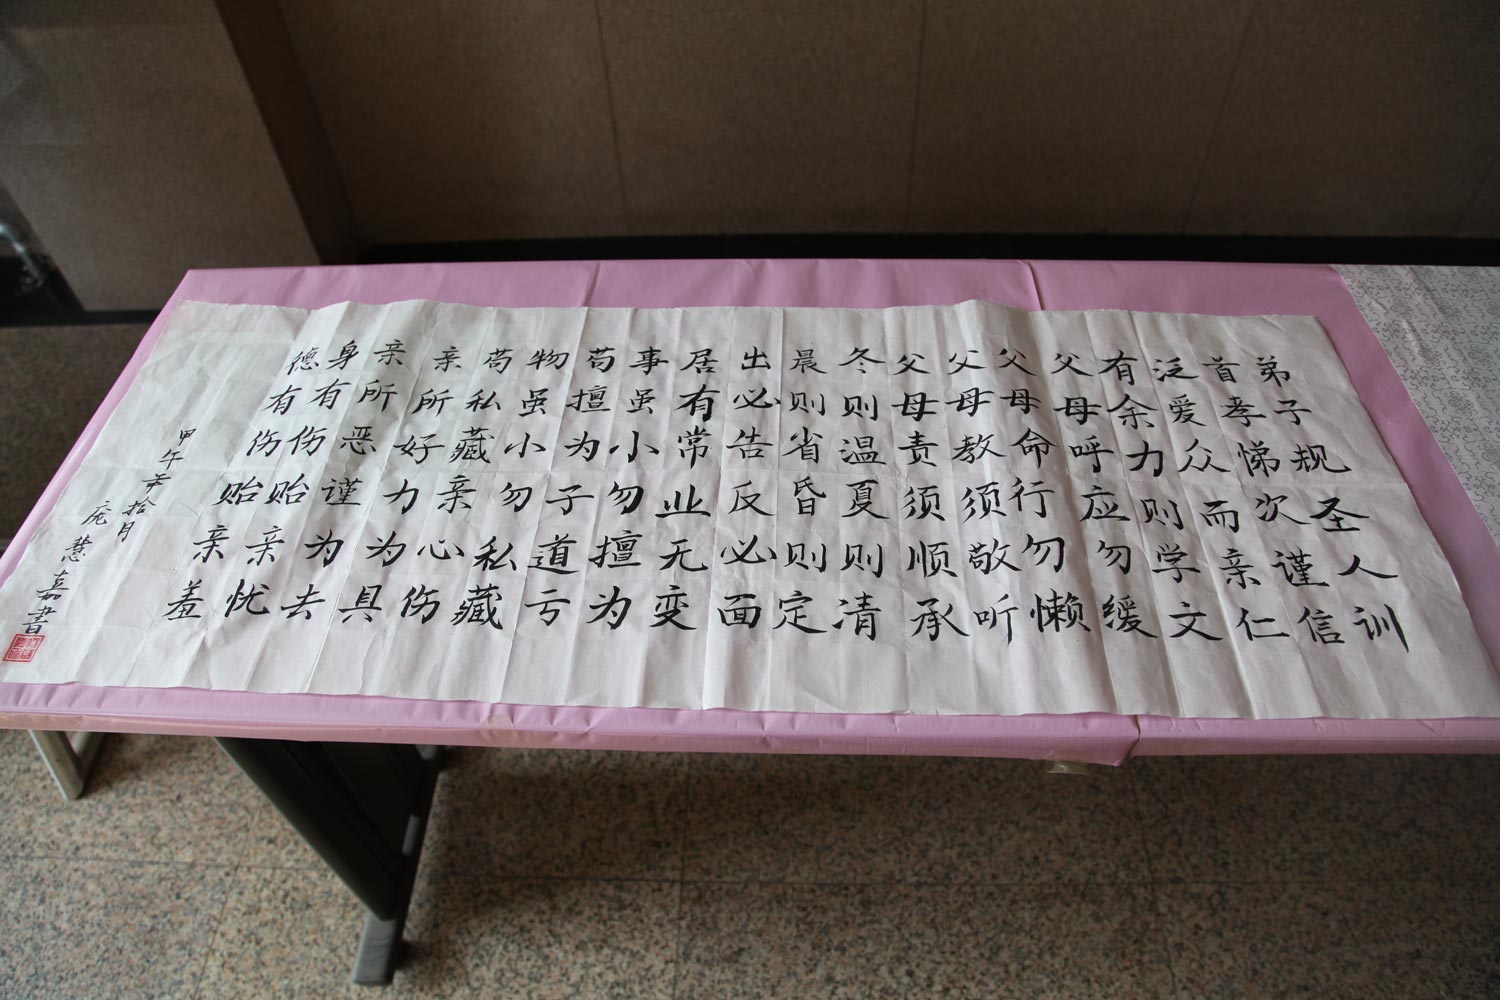 弟子规圣人训
首孝悌次谨信
泛爱众而亲仁
有余力则学文
父母呼应勿缓
父母命行勿懒
父母教须敬听
父母责须顺承
冬则温夏则清
晨则省昏则定
出必告反必面
居有常业无变
事虽小勿擅为
苟擅为子道亏
物虽小勿私藏
苟私藏亲心伤
亲所好力为具
亲所恶谨为去
身有伤贻亲忧
德有伤贻亲羞
甲午年拾月
庞慧嘉書